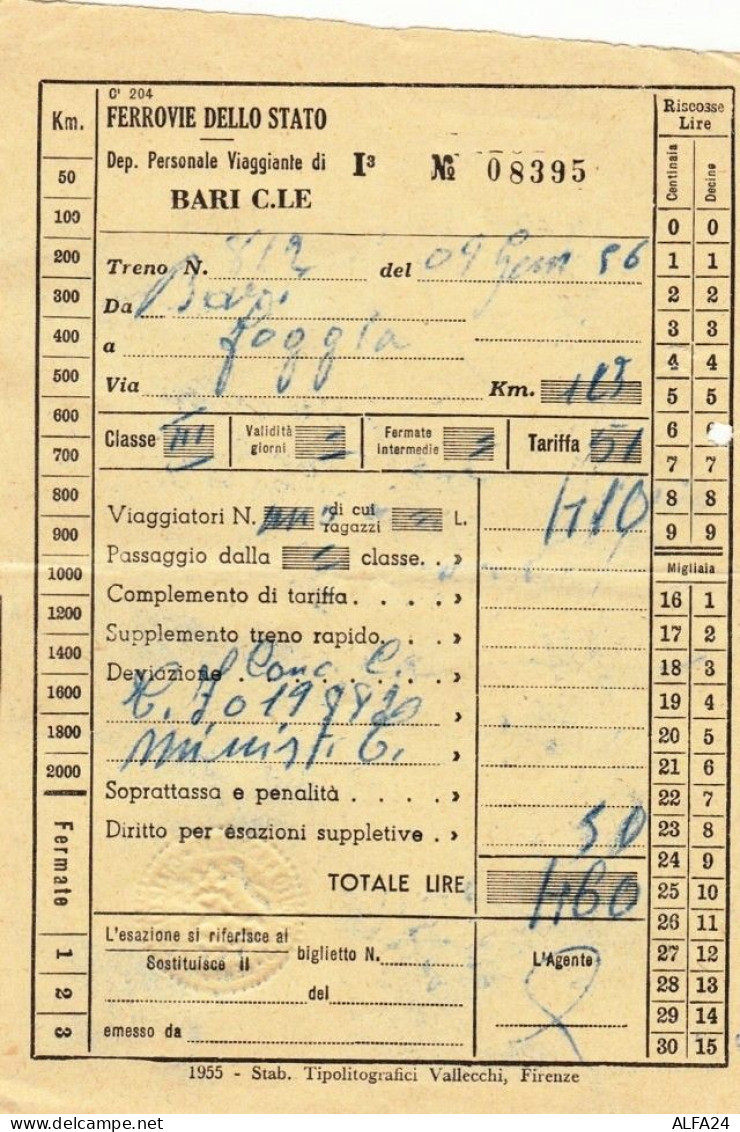 C' 204
Km.
50
100
200
300
400
500
600
700
800
900
1000
1200
1400
1600
1800
2000
Fermate
1
2
3
FERROVIE DELLO STATO
Dep. Personale Viaggiante di I³ № 08395
BARI C.LE
Treno N. 812 del 09 Gen 56
Da Bari
a Foggia
Via Km. 123
Classe III Validità giorni = Fermate intermedie = Tariffa 51
Viaggiatori N. di cui ragazzi = L. 410
Passaggio dalla = classe. . »
Complemento di tariffa. . . . »
Supplemento treno rapido. . . »
Deviazione . . . . . . . . . »
Conc. C.
»
»
Soprattassa e penalità . . . . »
Diritto per esazioni suppletive . » 50
TOTALE LIRE 460
L'esazione si riferisce al
Sostituisce il
biglietto N.
del
emesso da
L'Agente
Riscosse
Lire
Centinaia Decine
0 0
1 1
2 2
3 3
4 4
5 5
6
7 7
8 8
9 9
Migliaia
16 1
17 2
18 3
19 4
20 5
21 6
22 7
23 8
24 9
25 10
26 11
27 12
28 13
29 14
30 15
1955 - Stab. Tipolitografici Vallecchi, Firenze
ALFA24